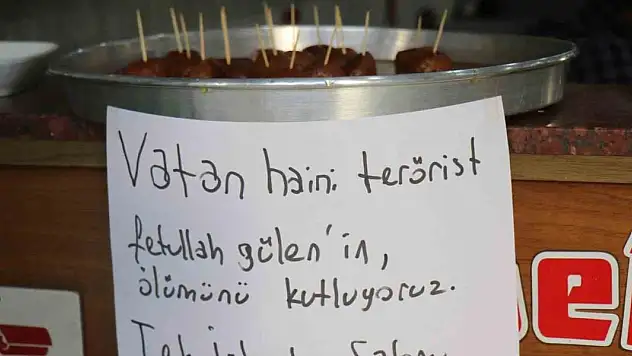 Vatan haini terörist
fetullah gülen'in,
ölümünü kutluyoruz.